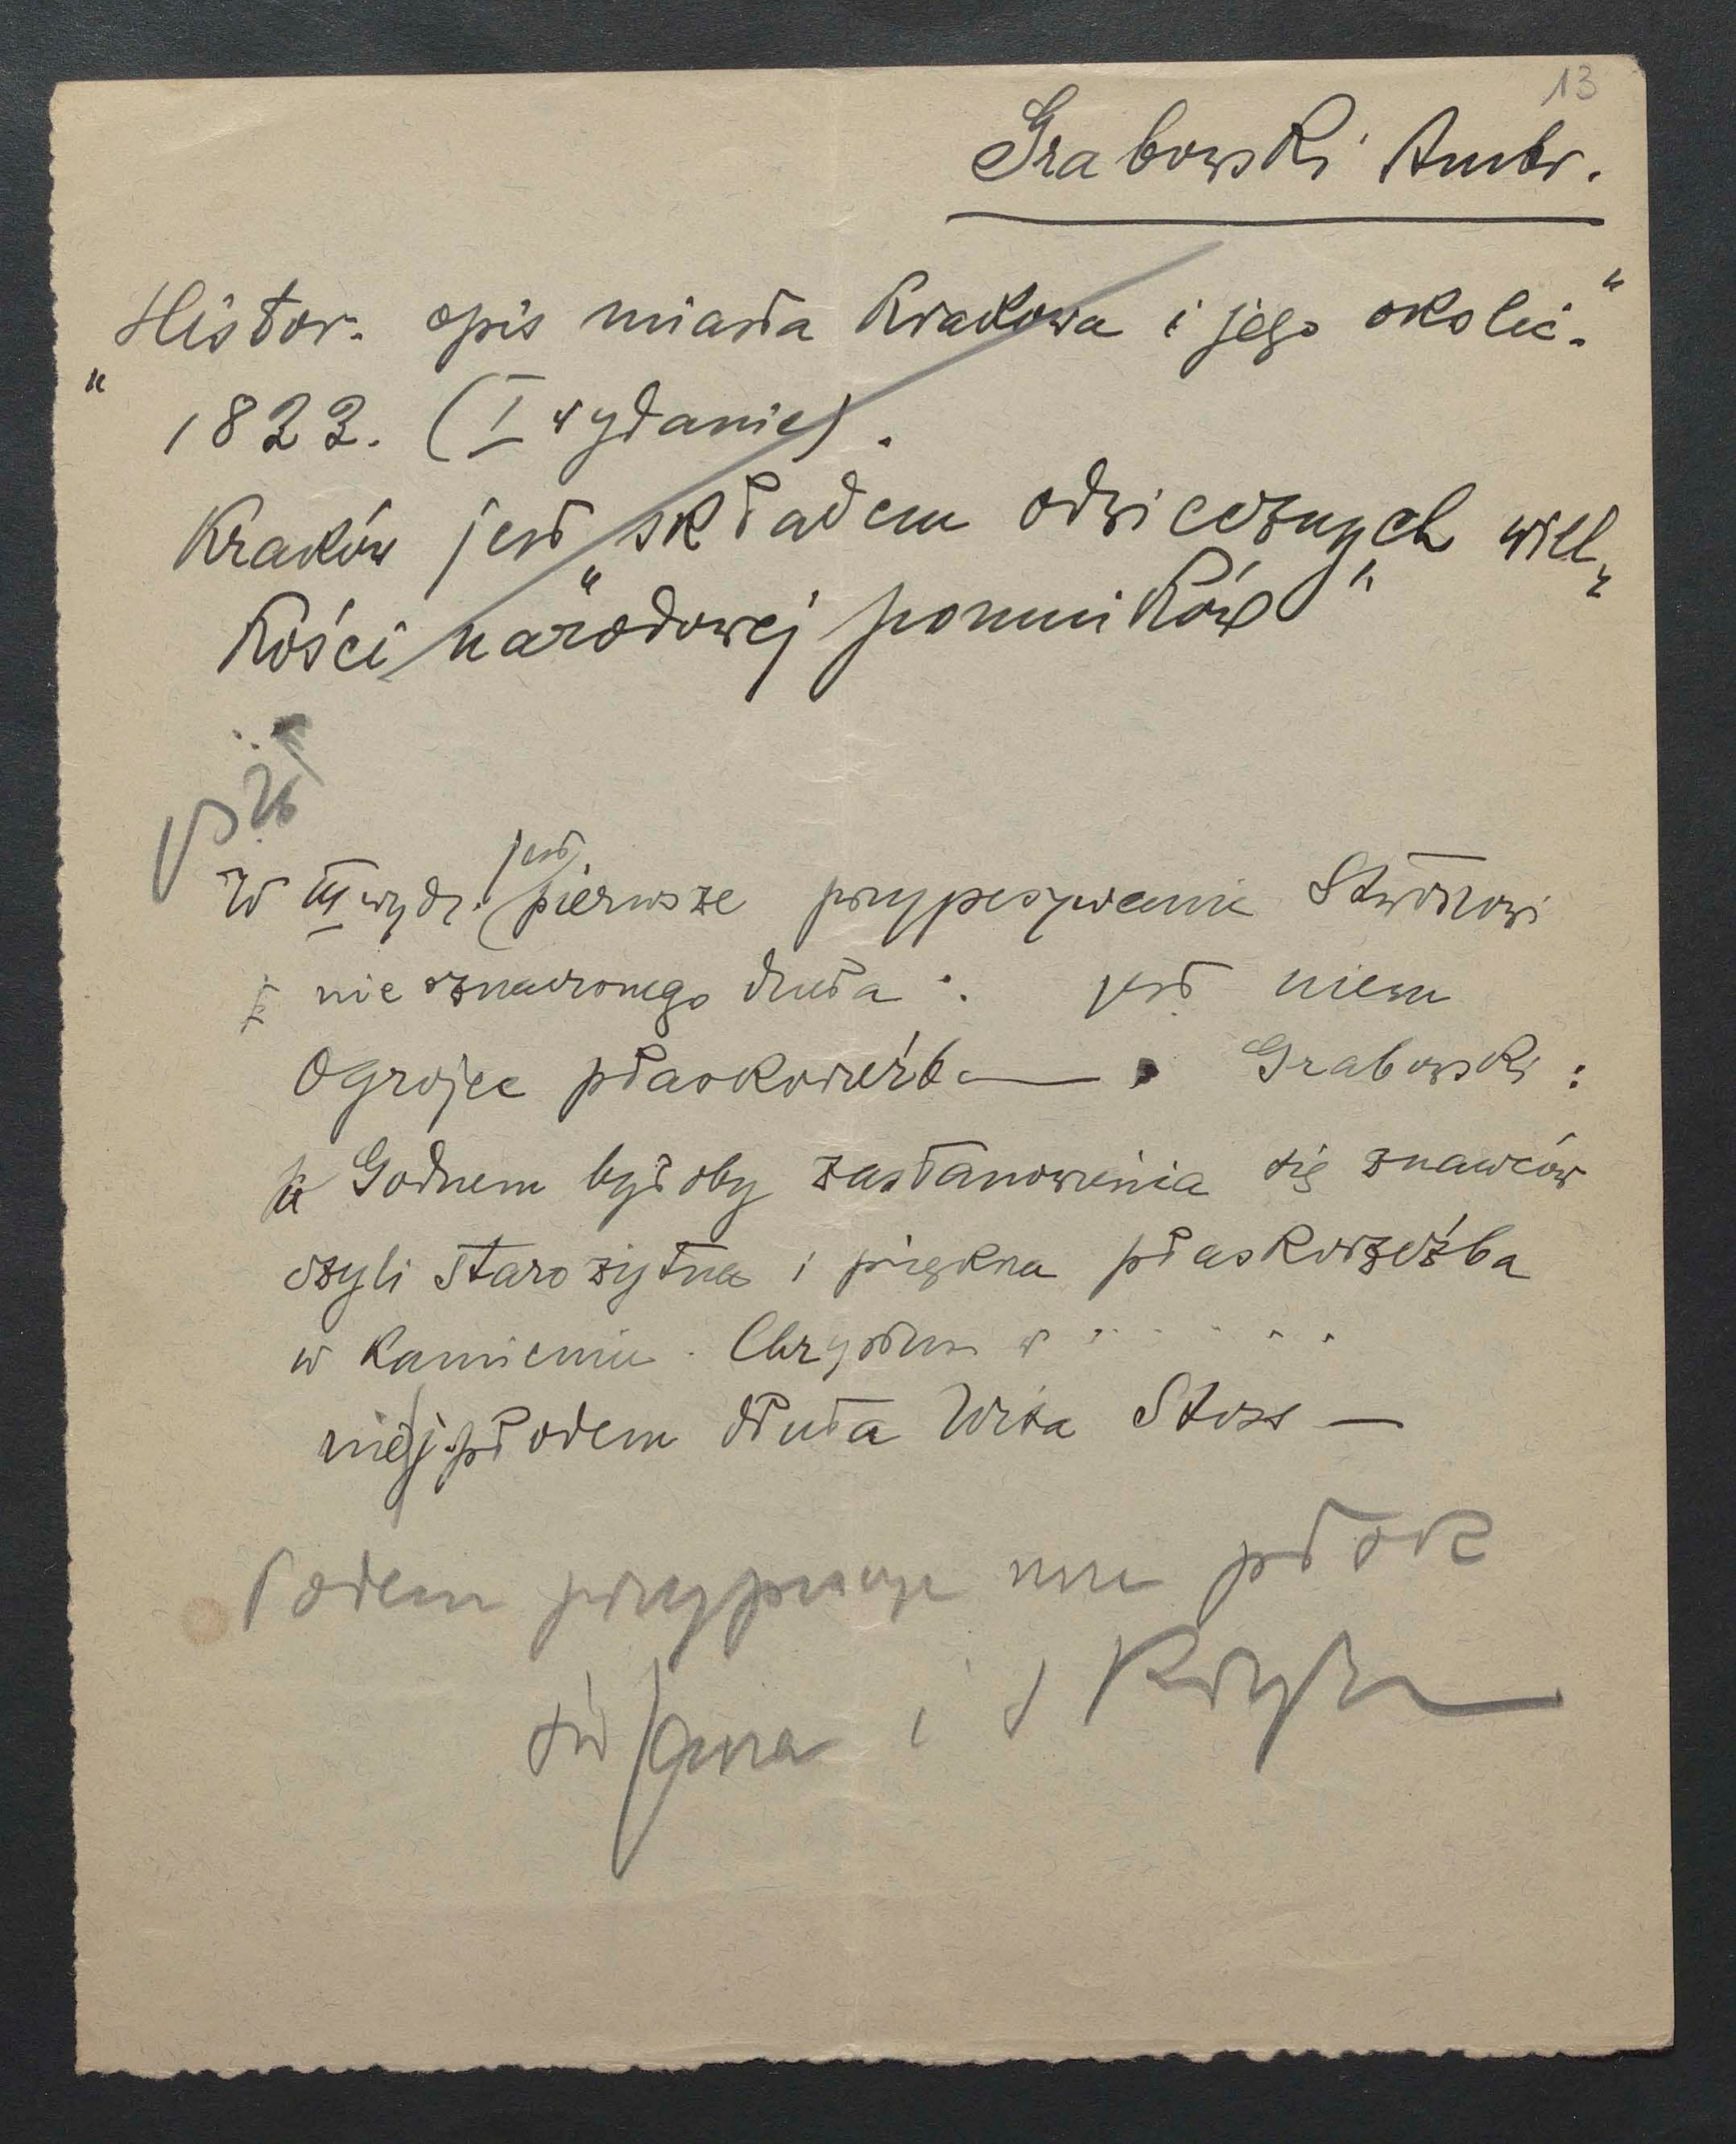 13
Grabowski Ambr.
"Histor. opis miasta Krakowa i jego okolic."
1822. (I wydanie).
Kraków jest "składem odwiecznych wiel-
kości narodowej pomników"
26
W III wyd. jest pierwsze przypisywanie Stwoszowi
nie oznaczonego dłuta: jest niem
Ogrojec płaskorzeźba — Grabowski:
Godnem byłoby zastanowienia się znawców
czyli starożytna i piękna płaskorzeźba
w kamieniu. Chrystus w . . . . . .
nie j. płodem dłuta Wita Stosz —
Potem przypisuje mu
i